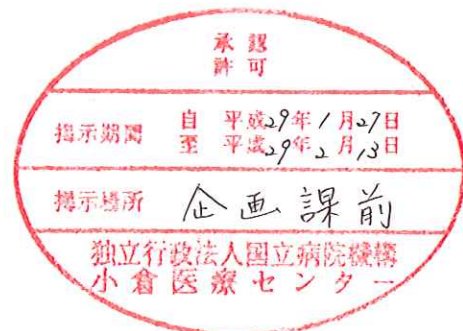 承認
許可
掲示期間 自 平成29年1月27日
至 平成29年2月13日
掲示場所 企画課前
独立行政法人国立病院機構
小倉医療センター